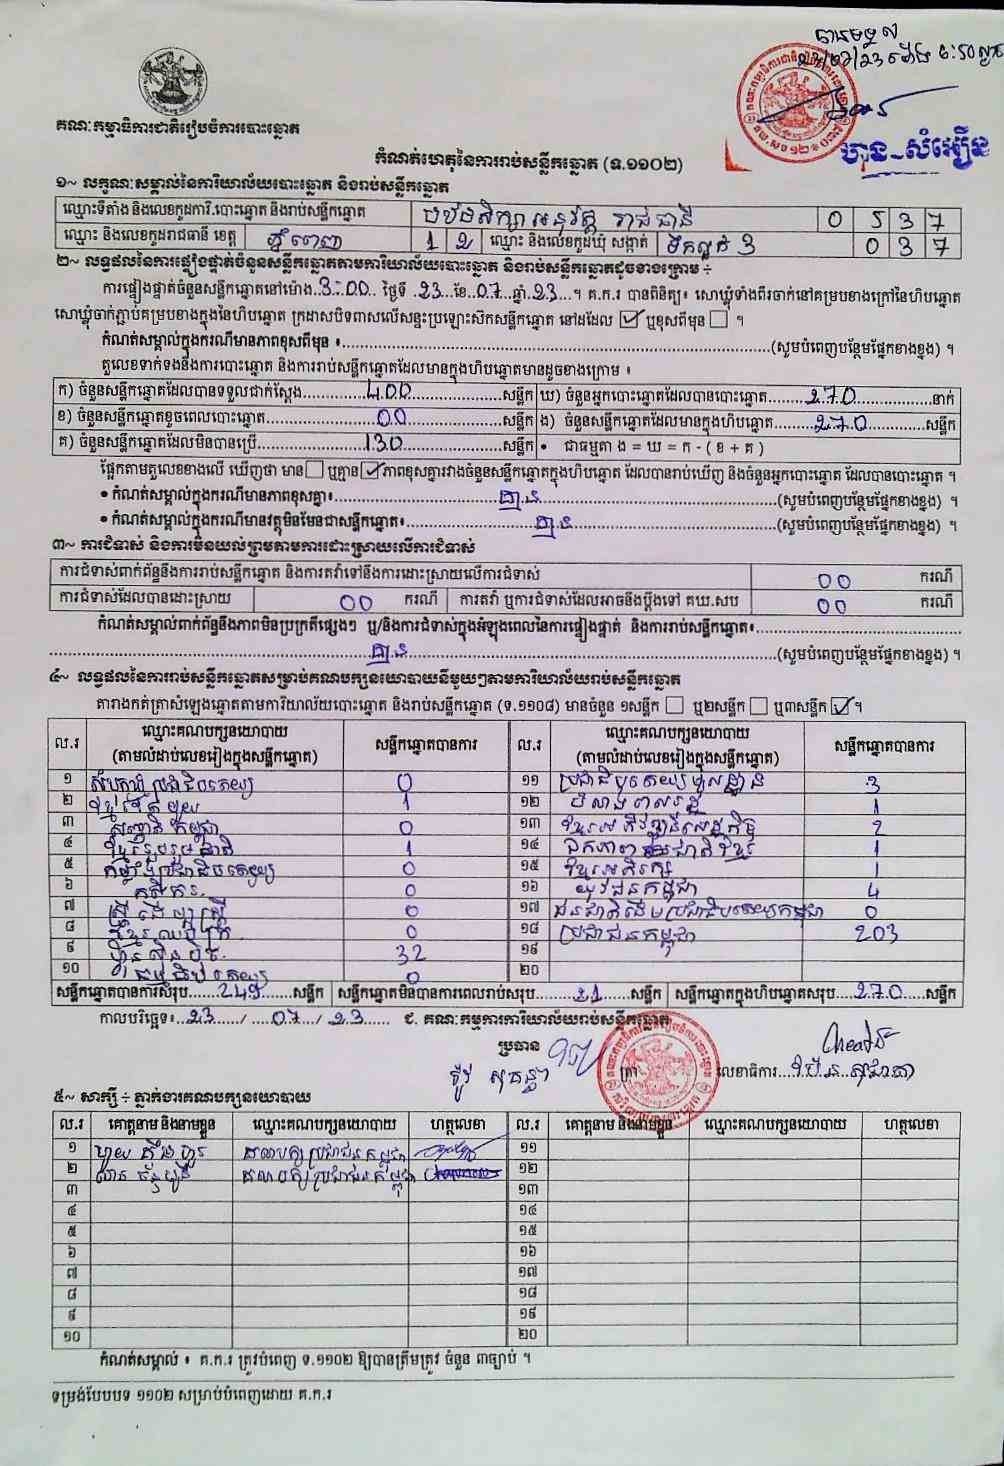 បានទទួល
23/07/23 ម៉ោង 6:50 ល្ងាច
ហ៊ុន-សំអឿន
គណៈកម្មាធិការជាតិរៀបចំការបោះឆ្នោត
កំណត់ហេតុនៃការរាប់សន្លឹកឆ្នោត (ទ.១១០២)
១~ លក្ខណៈសម្គាល់នៃការិយាល័យបោះឆ្នោត និងរាប់សន្លឹកឆ្នោត
ឈ្មោះទីតាំង និងលេខកូដការិ.បោះឆ្នោត និងរាប់សន្លឹកឆ្នោត រាជធានី 0 5 3 7
ឈ្មោះ និងលេខកូដរាជធានី ខេត្ត ភ្នំពេញ 1 2 ឈ្មោះ និងលេខកូដឃុំ សង្កាត់ ទឹកល្អក់ 3 0 3 7
២~ លទ្ធផលនៃការផ្ទៀងផ្ទាត់ចំនួនសន្លឹកឆ្នោតតាមការិយាល័យបោះឆ្នោត និងរាប់សន្លឹកឆ្នោតដូចខាងក្រោម ÷
ការផ្ទៀងផ្ទាត់ចំនួនសន្លឹកឆ្នោតនៅម៉ោង..3-00.. ថ្ងៃទី .23..ខែ.07..ឆ្នាំ.23...។ គ.ក.រ បានពិនិត្យ៖ សោឃ្លុំទាំងពីរចាក់នៅគម្របខាងក្រៅនៃហិបឆ្នោត
សោឃ្លុំចាក់ភ្ជាប់គម្របខាងក្នុងនៃហិបឆ្នោត ក្រដាសបិទពាសលើសន្ទះប្រឡោះសិកសន្លឹកឆ្នោត នៅដដែល ☑ ឬខុសពីមុន ☐ ។
កំណត់សម្គាល់ក្នុងករណីមានភាពខុសពីមុន ៖..........(សូមបំពេញបន្ថែមផ្នែកខាងខ្នង) ។
តួលេខទាក់ទងនឹងការបោះឆ្នោត និងការរាប់សន្លឹកឆ្នោតដែលមានក្នុងហិបឆ្នោតមានដូចខាងក្រោម ៖
ក) ចំនួនសន្លឹកឆ្នោតដែលបានទទួលជាក់ស្តែង..........400..........សន្លឹក ឃ) ចំនួនអ្នកបោះឆ្នោតដែលបានបោះឆ្នោត..........270..........នាក់
ខ) ចំនួនសន្លឹកឆ្នោតខូចពេលបោះឆ្នោត..........00..........សន្លឹក ង) ចំនួនសន្លឹកឆ្នោតដែលមានក្នុងហិបឆ្នោត..........270..........សន្លឹក
គ) ចំនួនសន្លឹកឆ្នោតដែលមិនបានប្រើ..........130..........សន្លឹក • ជាធម្មតា ង = ឃ = ក - ( ខ + គ )
ផ្អែកតាមតួលេខខាងលើ ឃើញថា មាន ☐ ឬគ្មាន ☑ ភាពខុសគ្នារវាងចំនួនសន្លឹកឆ្នោតក្នុងហិបឆ្នោត ដែលបានរាប់ឃើញ និងចំនួនអ្នកបោះឆ្នោត ដែលបានបោះឆ្នោត ។
• កំណត់សម្គាល់ក្នុងករណីមានភាពខុសគ្នា៖..........គ្មាន..........(សូមបំពេញបន្ថែមផ្នែកខាងខ្នង) ។
• កំណត់សម្គាល់ក្នុងករណីមានវត្ថុមិនមែនជាសន្លឹកឆ្នោត៖..........គ្មាន..........(សូមបំពេញបន្ថែមផ្នែកខាងខ្នង) ។
៣~ ការជំទាស់ និងការមិនយល់ព្រមតាមការដោះស្រាយលើការជំទាស់
ការជំទាស់ពាក់ព័ន្ធនឹងការរាប់សន្លឹកឆ្នោត និងការតវ៉ាទៅនឹងការដោះស្រាយលើការជំទាស់ 00 ករណី
ការជំទាស់ដែលបានដោះស្រាយ 00 ករណី ការតវ៉ា ឬការជំទាស់ដែលអាចនឹងប្តឹងទៅ គឃ.សប 00 ករណី
កំណត់សម្គាល់ពាក់ព័ន្ធនឹងភាពមិនប្រក្រតីផ្សេងៗ ឬ/និងការជំទាស់ក្នុងអំឡុងពេលនៃការផ្ទៀងផ្ទាត់ និងការរាប់សន្លឹកឆ្នោត៖..........
..........គ្មាន..........(សូមបំពេញបន្ថែមផ្នែកខាងខ្នង) ។
៤~ លទ្ធផលនៃការរាប់សន្លឹកឆ្នោតសម្រាប់គណបក្សនយោបាយនីមួយៗតាមការិយាល័យរាប់សន្លឹកឆ្នោត
តារាងកត់ត្រាសំឡេងឆ្នោតតាមការិយាល័យបោះឆ្នោត និងរាប់សន្លឹកឆ្នោត (ទ.១១០៨) មានចំនួន ១សន្លឹក ☐ ឬ២សន្លឹក ☐ ឬ៣សន្លឹក ☑ ។
ល.រ ឈ្មោះគណបក្សនយោបាយ (តាមលំដាប់លេខរៀងក្នុងសន្លឹកឆ្នោត) សន្លឹកឆ្នោតបានការ ល.រ ឈ្មោះគណបក្សនយោបាយ (តាមលំដាប់លេខរៀងក្នុងសន្លឹកឆ្នោត) សន្លឹកឆ្នោតបានការ
១ សំបុកឃ្មុំប្រជាធិបតេយ្យ 0 ១១ ប្រជាធិបតេយ្យមូលដ្ឋាន 3
២ ខ្មែរតែមួយ 1 ១២ 1
៣ សញ្ជាតិកម្ពុជា 0 ១៣ ខ្មែរអភិវឌ្ឍន៍សេដ្ឋកិច្ច 2
៤ ខ្មែររួបរួមជាតិ 1 ១៤ ឯកភាពជាតិខ្មែរ 1
៥ កម្លាំងប្រជាធិបតេយ្យ 0 ១៥ ខ្មែរអភិរក្ស 1
៦ កសិករ 0 ១៦ យុវជនកម្ពុជា 4
៧ ស្ត្រីដើម្បីស្ត្រី 0 ១៧ ជនជាតិដើមប្រជាធិបតេយ្យកម្ពុជា 0
៨ ខ្មែរឈប់ក្រ 0 ១៨ ប្រជាជនកម្ពុជា 203
៩ ហ្វ៊ុនស៊ិនប៉ិច 32 ១៩
១០ ធម្មាធិបតេយ្យ 0 ២០
សន្លឹកឆ្នោតបានការសរុប......249......សន្លឹក សន្លឹកឆ្នោតមិនបានការពេលរាប់សរុប......21......សន្លឹក សន្លឹកឆ្នោតក្នុងហិបឆ្នោតសរុប....270.....សន្លឹក
កាលបរិច្ឆេទ៖..23....../ ....07.../ .23...... ៩. គណៈកម្មការការិយាល័យរាប់សន្លឹកឆ្នោត
ប្រធាន
លេខាធិការ
៥~ សាក្សី ÷ ភ្នាក់ងារគណបក្សនយោបាយ
ល.រ គោត្តនាម និងនាមខ្លួន ឈ្មោះគណបក្សនយោបាយ ហត្ថលេខា ល.រ គោត្តនាម និងនាមខ្លួន ឈ្មោះគណបក្សនយោបាយ ហត្ថលេខា
១ គណបក្សប្រជាជនកម្ពុជា ១១
២ គណបក្សប្រជាជនកម្ពុជា ១២
៣ ១៣
៤ ១៤
៥ ១៥
៦ ១៦
៧ ១៧
៨ ១៨
៩ ១៩
១០ ២០
កំណត់សម្គាល់ ៖ គ.ក.រ ត្រូវបំពេញ ទ.១១០២ ឱ្យបានត្រឹមត្រូវ ចំនួន ៣ច្បាប់ ។
ទម្រង់បែបបទ ១១០២ សម្រាប់បំពេញដោយ គ.ក.រ